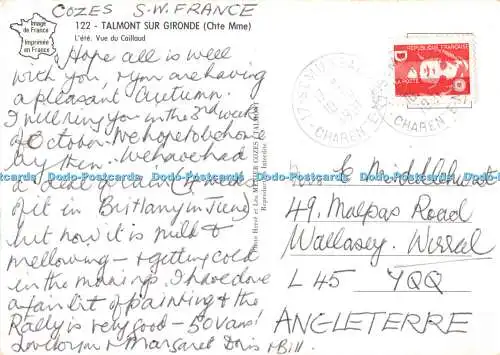 COZES S.W. FRANCE
Image
de France
Imprimée
en France
122 - TALMONT SUR GIRONDE (Chte Mme)
L'été. Vue du Caillaud
Hope all is well
with you, & you are having
a pleasant Autumn.
I'll ring you in the 3rd week
of October. We hope to be home
by then. We have had
a deal of rain (4 weeks
of it in Brittany in June)
but now it is mild &
mellowing - & getting cold
in the mornings. I have done
a fair bit of painting & the
Rally is very good - 50 vans!
Love to you & Margaret Doris & Bill.
RÉPUBLIQUE FRANÇAISE
D
LA POSTE
CHAREN
E. Middlehurst
49, Malpas Road
Wallasey. Wirral
L45 4QQ
ANGLETERRE
www.postcards-worldwide.com